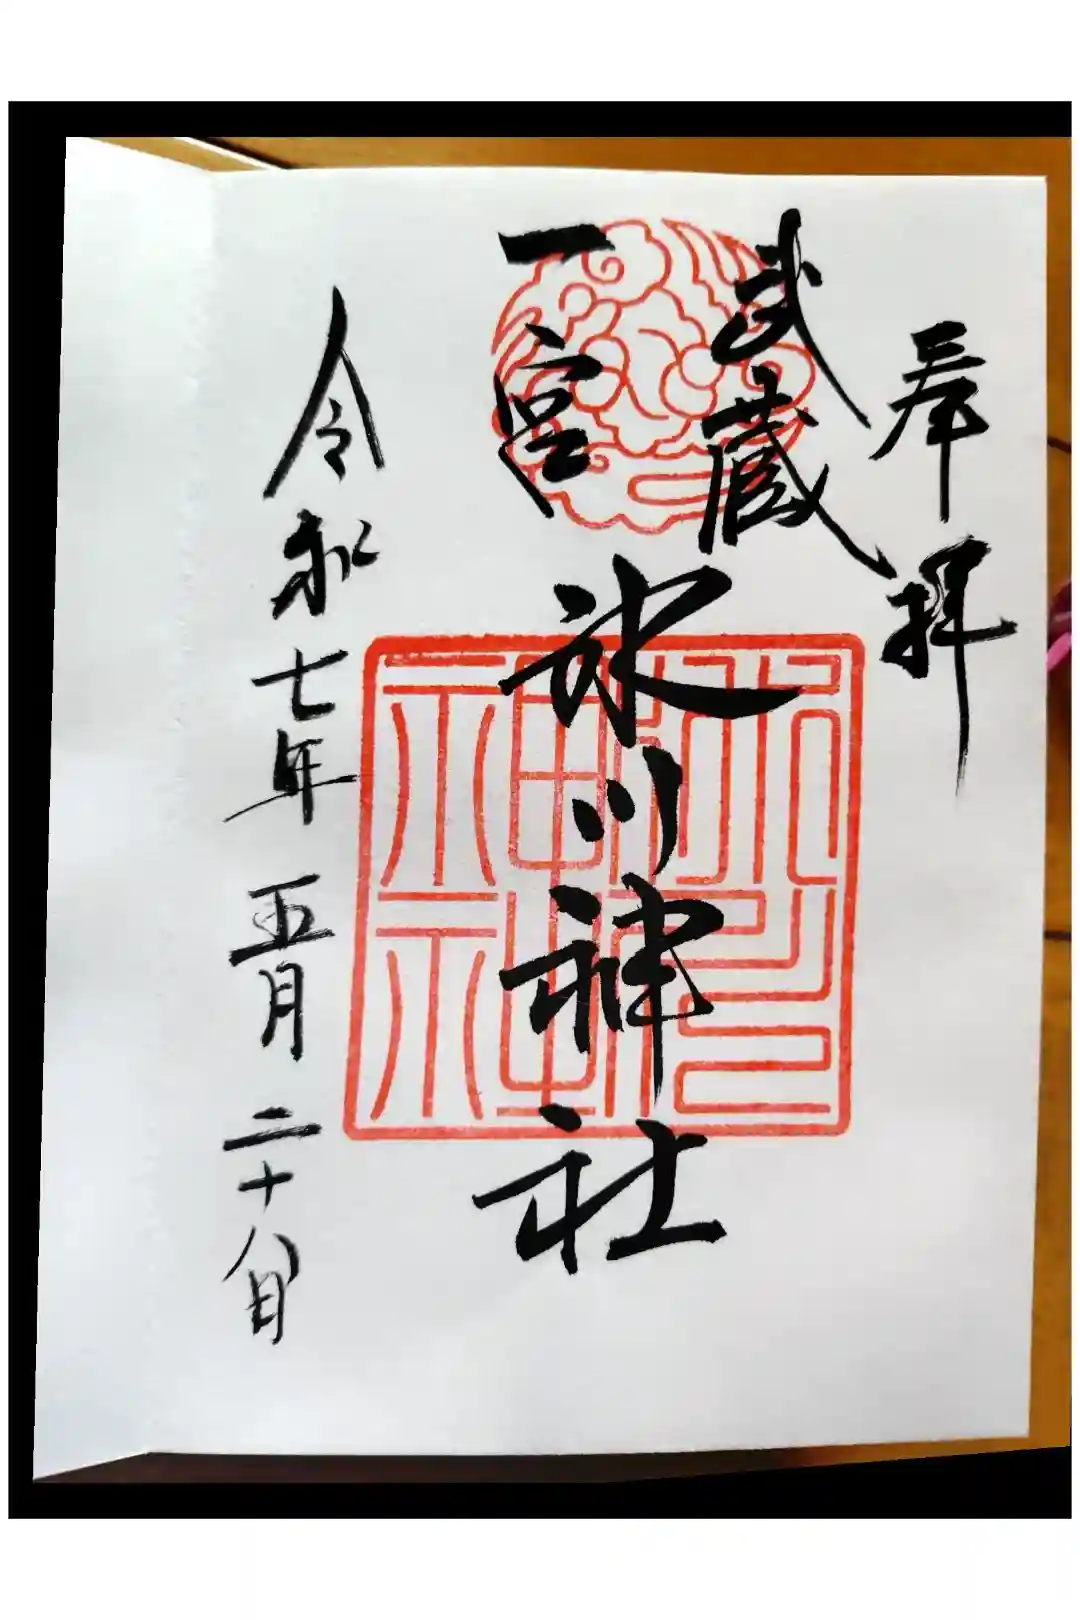 奉拝
武蔵
一宮
氷川神社
令和七年五月二十八日
氷川神社